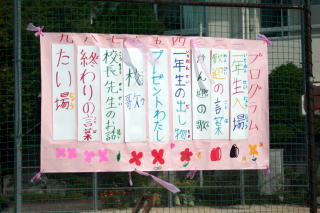 プログラム
一 一年生入場
二 歓迎の言葉
三 かん迎の歌
四 一年生の出し物
五 プレゼントわたし
六 校歌
七 校長先生のお話
八 終わりの言葉
九 たい場